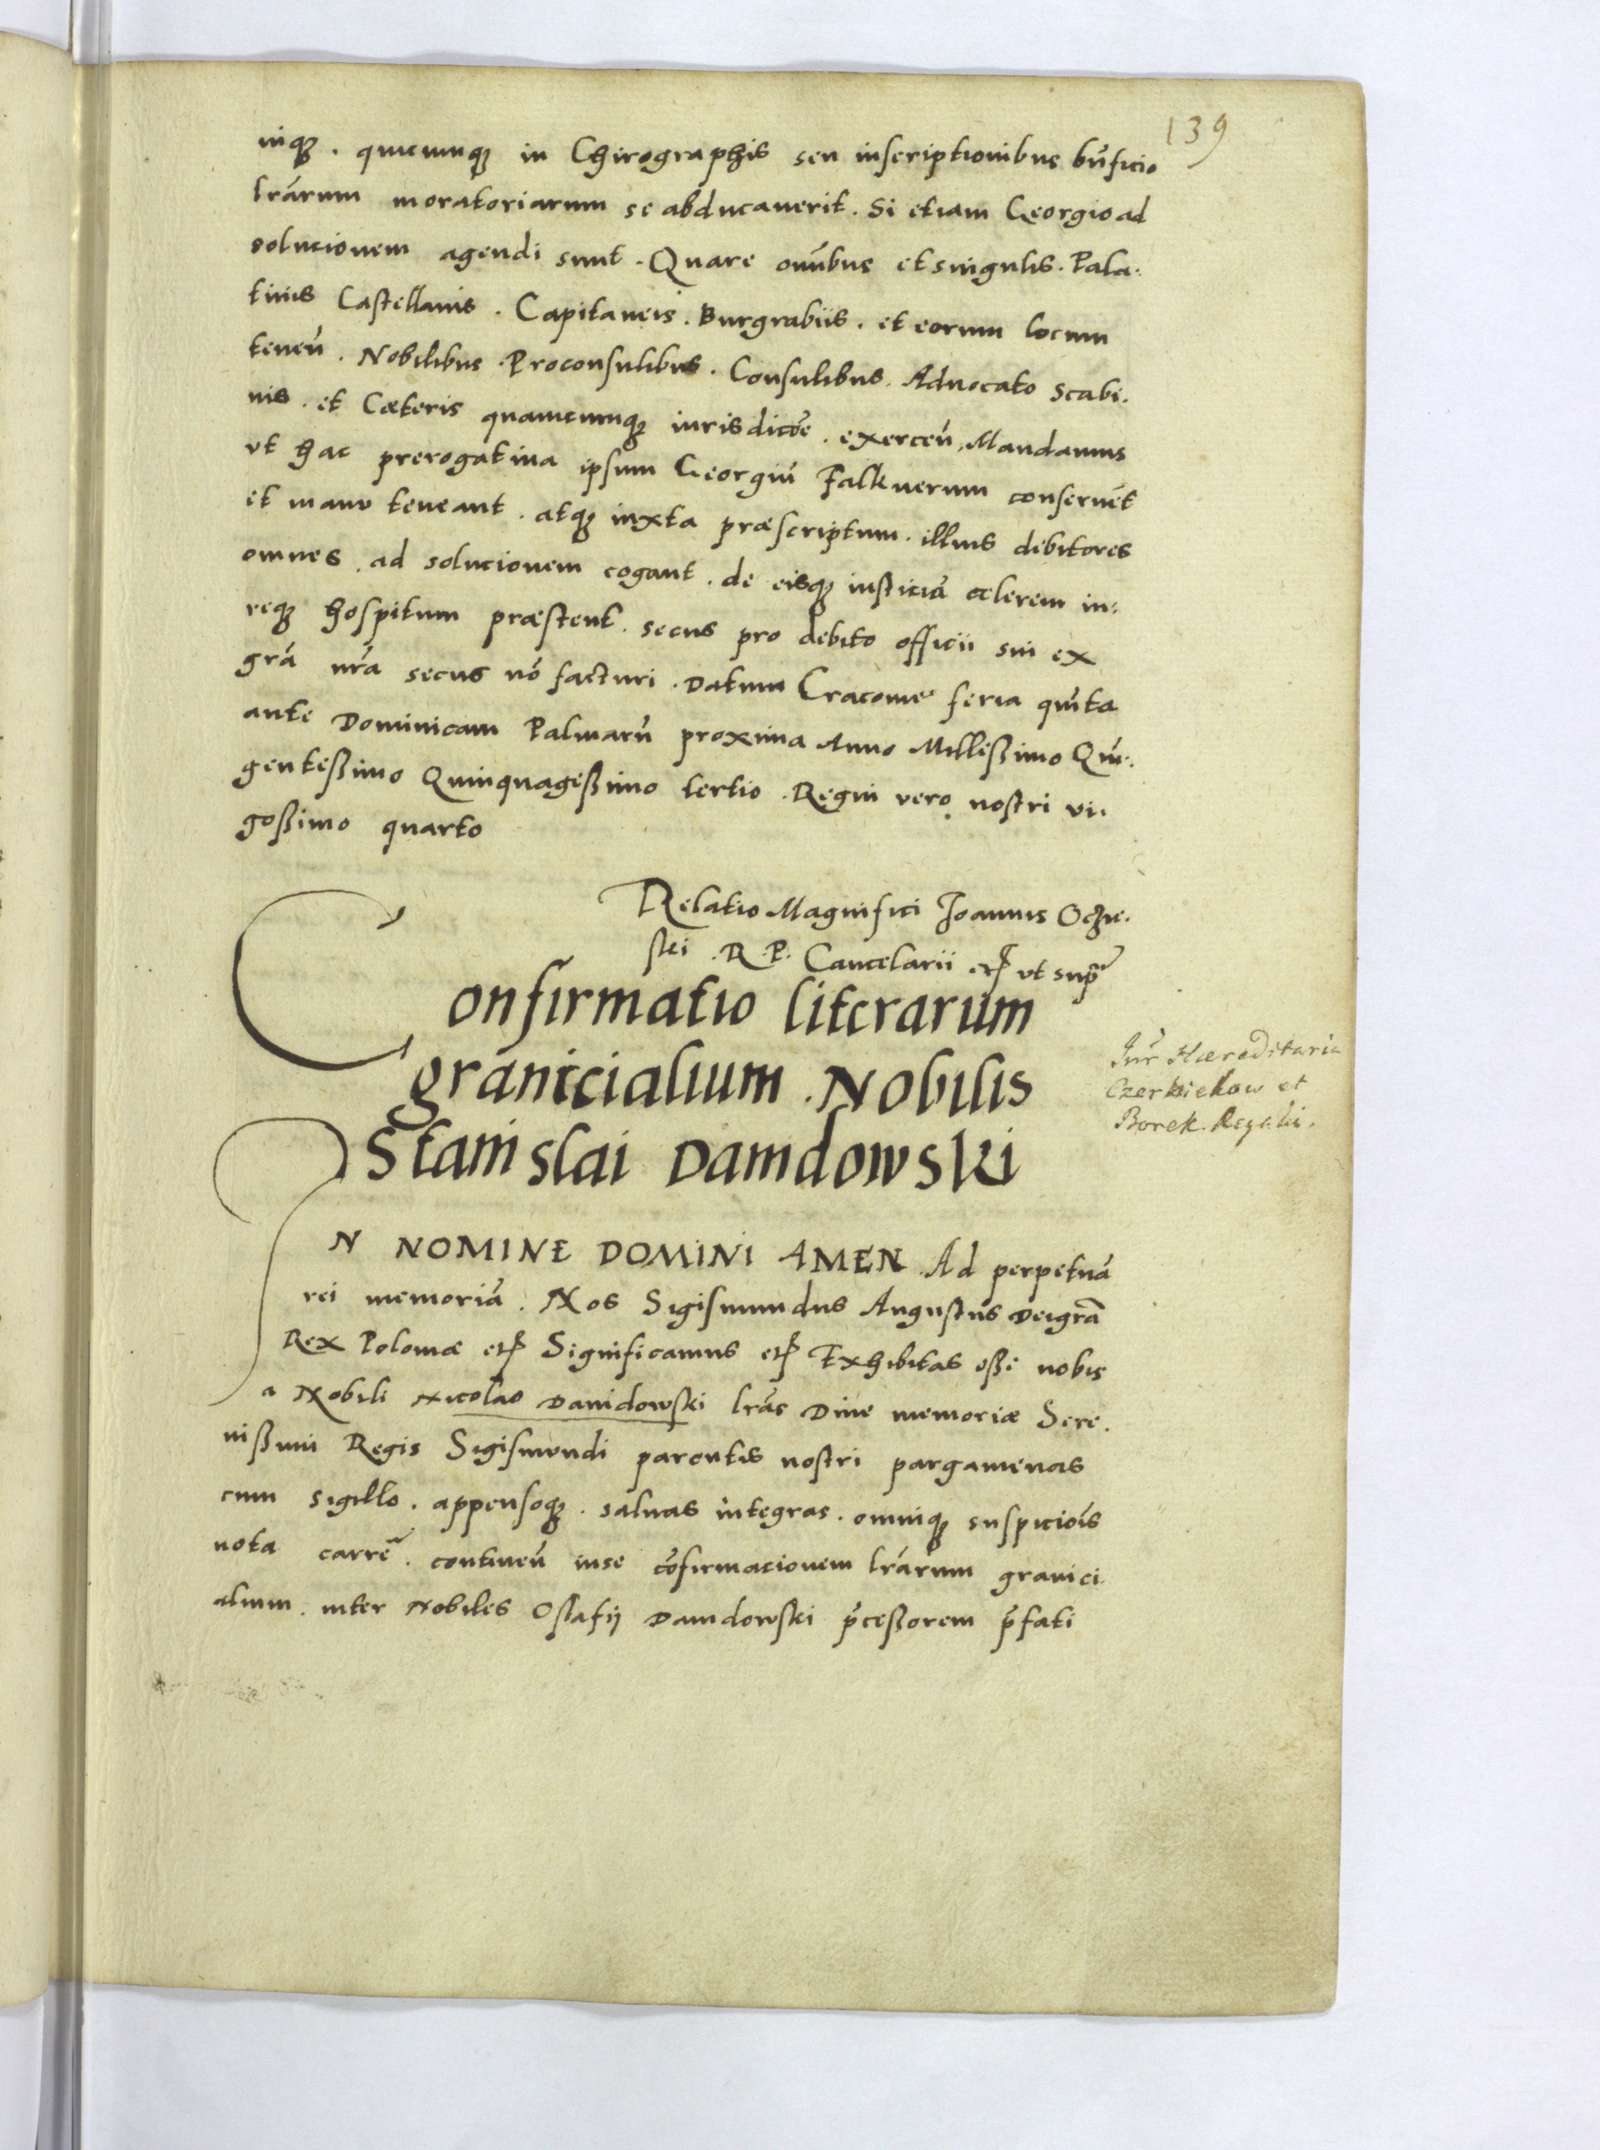 139
inq₃. quicunq₃ in Chirographis seu inscriptionibus bn̄ficio
lrārum moratoriarum se abducauerit. Si etiam Georgio ad
solucionem agendi sunt. Quare om̄ibus et singulis. Pala-
tinis Castellanis. Capitaneis. Burgrabiis. et eorum locum
tenen̄. Nobilibus. Proconsulibus. Consulibus. Aduocato Scabi-
nis. et Cæteris quamcunq₃ iurisdicōe. exercen̄. Mandamus
vt hac prerogatiua ipsum Georgiū Falknerum conseruēt
et manu teneant. atq₃ iuxta præscriptum. illius debitores
omnes. ad solucionem cogant. de eisq₃ iusticiā celerem iu-
req₃ hospitum præstent. secus pro debito officii sui ex
grā nrā secus nō facturi. Datum Cracouie feria quīta
ante Dominicam Palmarū proxima Anno Millessimo Quī-
gentessimo Quinquagessimo tertio. Regni vero nostri vi-
gessimo quarto
Relatio Magnifici Joannis Oczie-
ski. R. P. Cancelarii etc̄ vt supr̄
Confirmatio literarum
granicialium. Nobilis
Stanislai Damdowski
Jur̄ Hæreditaria
Czerkiekow et
Borek Regalis.
IN NOMINE DOMINI AMEN. Ad perpetuā
rei memoriā. Nos Sigismundus Augustus Dei grā
Rex Poloniæ etc̄ Significamus etc̄ Exhibitas esse nobis
a Nobili Nicolao Dauidowski lrās Diue memoriæ Sere-
nissimi Regis Sigismundi parentis nostri pargamenas
cum sigillo. appensoq₃. saluas integras. omniq₃ suspiciōis
nota carrē. continen̄ in se cōfirmacionem lrārum granici-
alium. inter Nobiles Ostafij Damdowski p̄cessorem p̄fati